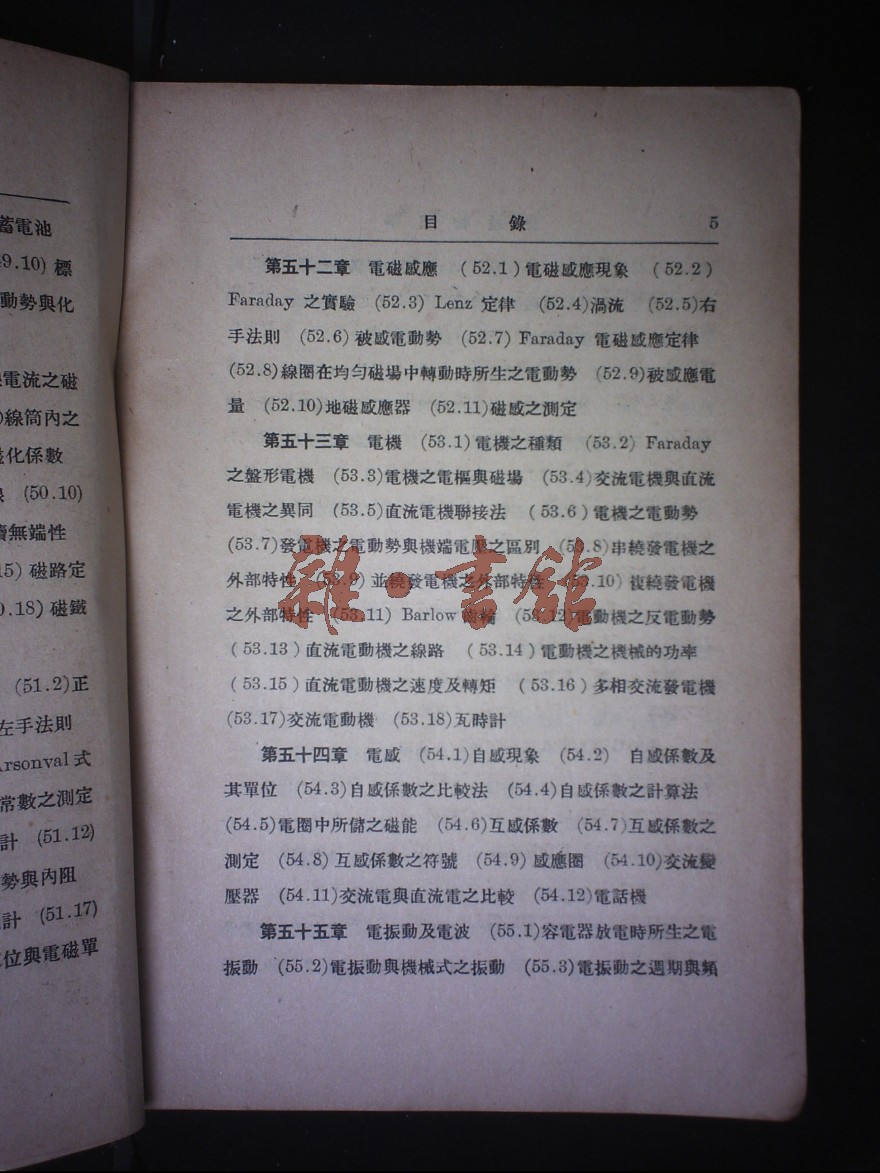 蓄電池
9.10) 標
動勢與化
電流之磁
)線筒內之
化係數
(50.10)
無端性
15) 磁路定
0.18) 磁鐵
(51.2)正
左手法則
Arsonval 式
常數之測定
計 (51.12)
勢與內阻
計 (51.17)
位與電磁單
目 錄 5
第五十二章 電磁感應 (52.1)電磁感應現象 (52.2)
Faraday 之實驗 (52.3) Lenz 定律 (52.4)渦流 (52.5)右
手法則 (52.6) 被感電動勢 (52.7) Faraday 電磁感應定律
(52.8)線圈在均勻磁場中轉動時所生之電動勢 (52.9)被感應電
量 (52.10)地磁感應器 (52.11)磁感之測定
第五十三章 電機 (53.1)電機之種類 (53.2) Faraday
之盤形電機 (53.3)電機之電樞與磁場 (53.4)交流電機與直流
電機之異同 (53.5)直流電機聯接法 (53.6)電機之電動勢
(53.7)發電機之電動勢與機端電壓之區別 (53.8)串繞發電機之
外部特性 (53.9) 並繞發電機之外部特性 (53.10) 複繞發電機
之外部特性 (53.11) Barlow 齒輪 (53.12)電動機之反電動勢
(53.13)直流電動機之線路 (53.14)電動機之機械的功率
(53.15)直流電動機之速度及轉矩 (53.16)多相交流發電機
(53.17)交流電動機 (53.18)瓦時計
第五十四章 電感 (54.1)自感現象 (54.2) 自感係數及
其單位 (54.3)自感係數之比較法 (54.4)自感係數之計算法
(54.5)電圈中所儲之磁能 (54.6)互感係數 (54.7)互感係數之
測定 (54.8) 互感係數之符號 (54.9) 感應圈 (54.10)交流變
壓器 (54.11)交流電與直流電之比較 (54.12)電話機
第五十五章 電振動及電波 (55.1)容電器放電時所生之電
振動 (55.2)電振動與機械式之振動 (55.3)電振動之週期與頻
雜·書館